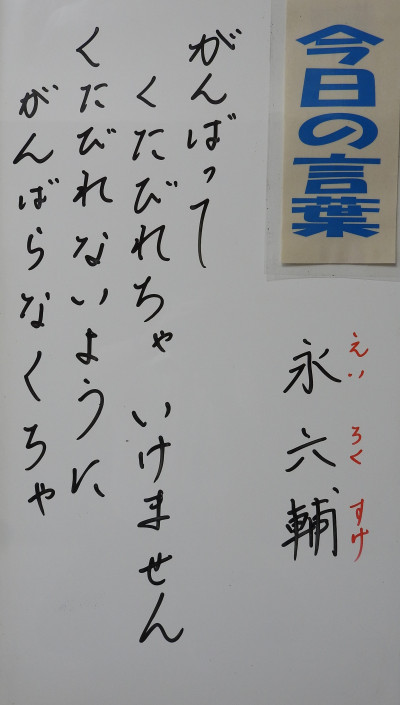 今日の言葉
永六輔
えいろくすけ
がんばって
くたびれちゃ いけません
くたびれないように
がんばらなくちゃ